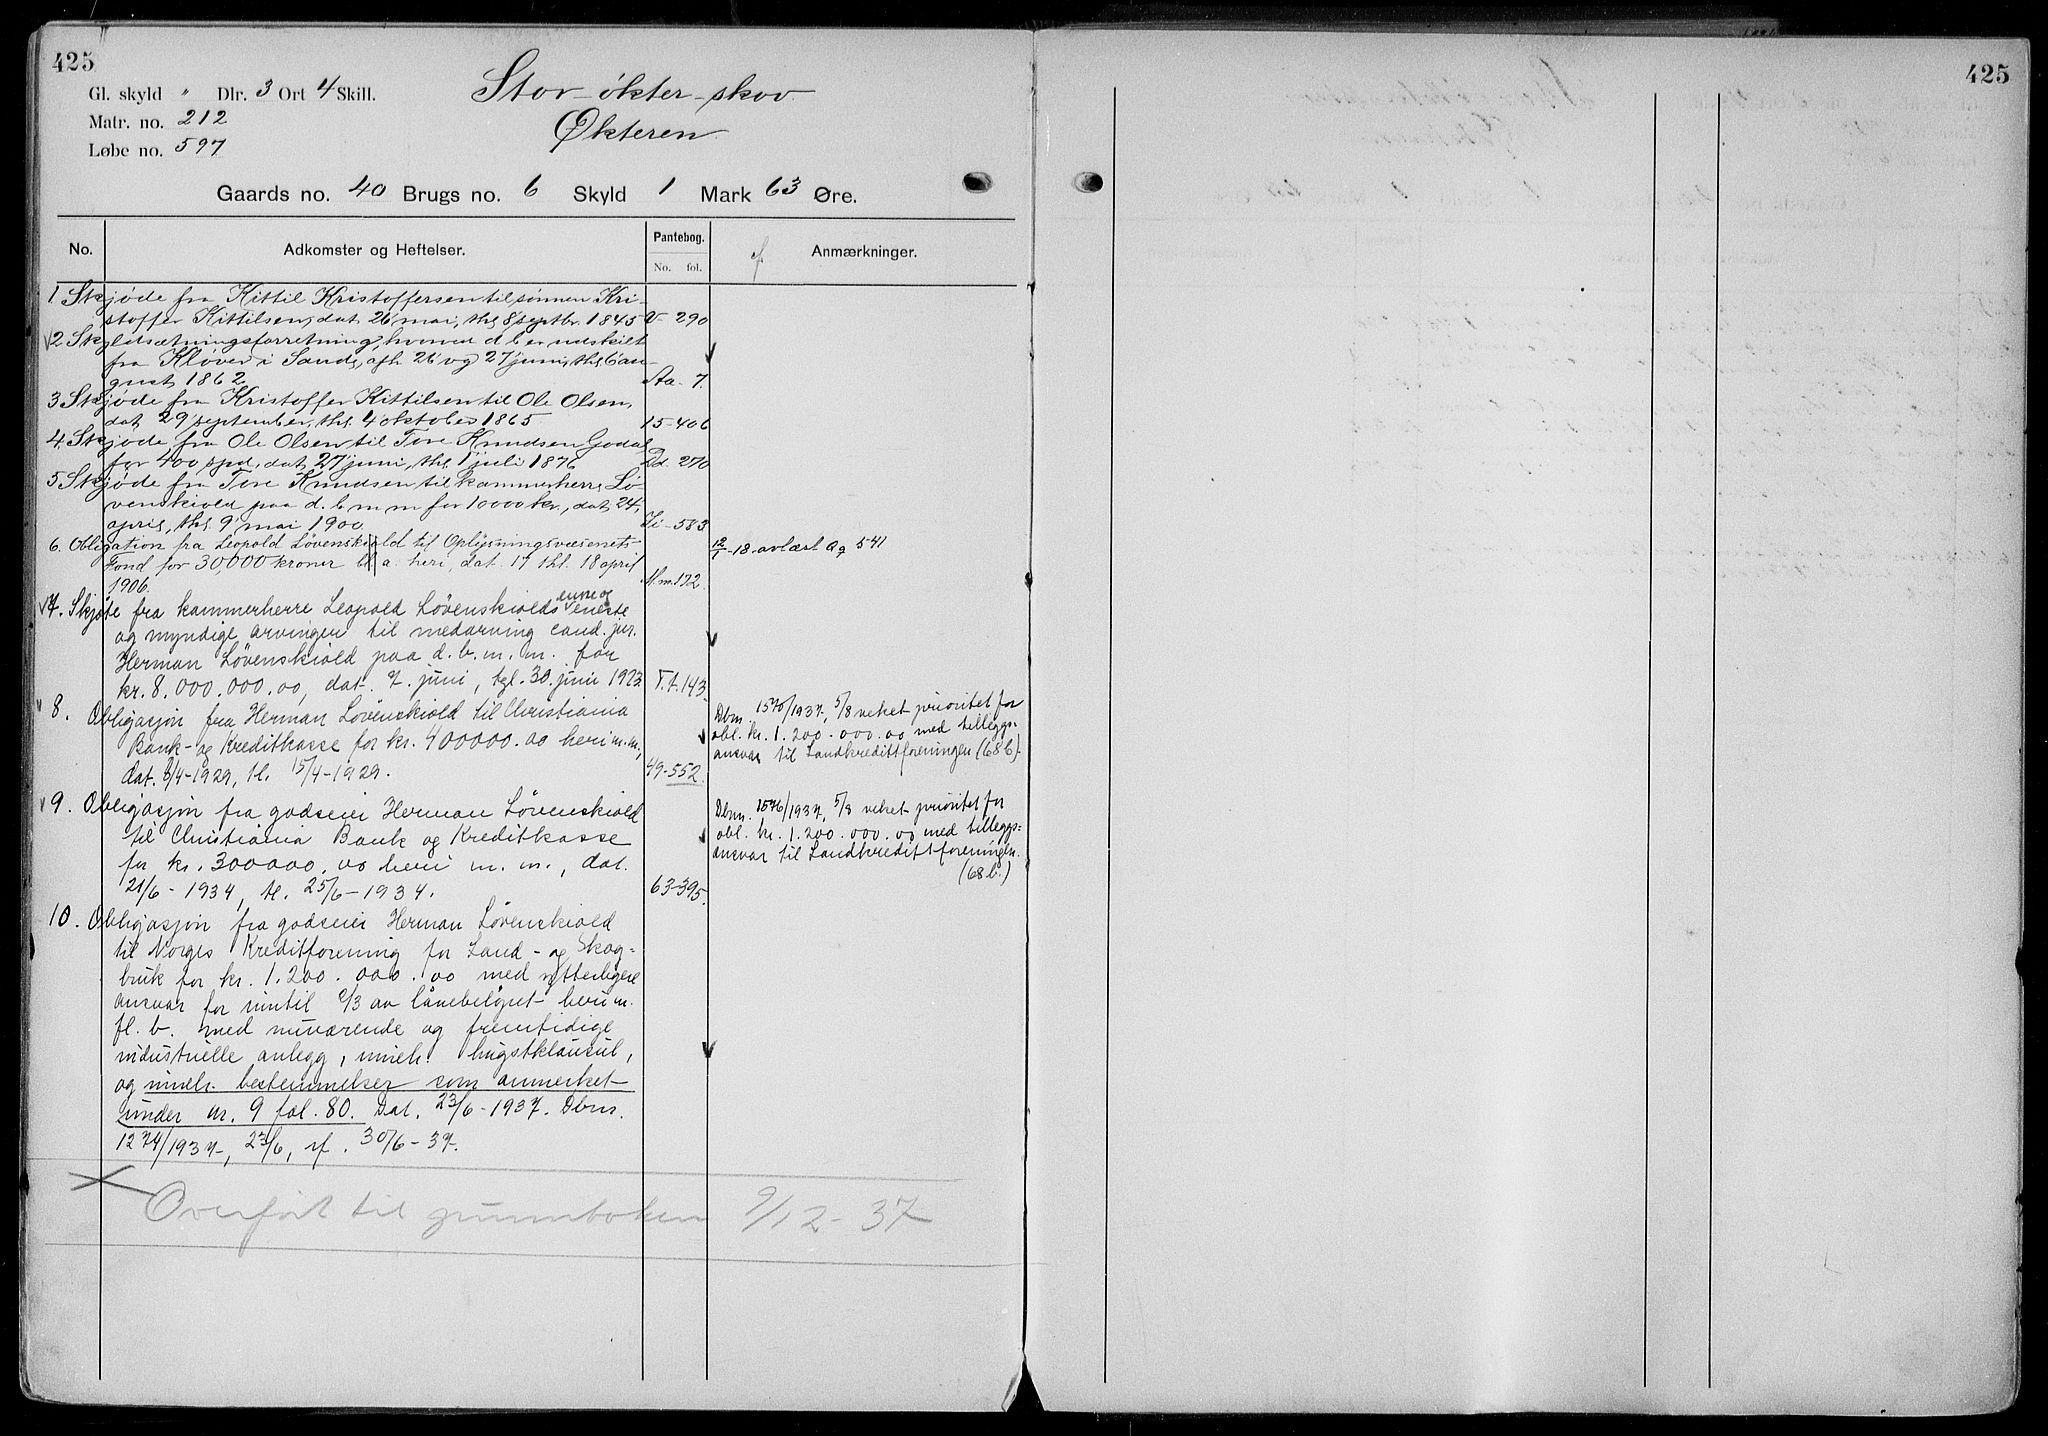 425
Gl. skyld " Dlr. 3 Ort 4 Skill.
Matr. no. 212
Løbe no. 597
Stor-økter-skov
Økteren
Gaards no. 40 Brugs no. 6 Skyld 1 Mark 63 Øre.
No. Adkomster og Heftelser. Pantebog. Anmærkninger.
No. fol.
1 Skjøde fra Kittil Kristoffersen til sønnen Kri-
stoffer Kittilsen, dat 26 mai, thl 8 septbr 1845 V- 290
2 Skyldsætningsforretning, hvorved d b er udskilt
fra Kløver i Sande, afh 26 og 27 juni, thl 6 au-
gust 1862 Aa- 7.
3 Skjøde fra Kristoffer Kittilsen til Ole Olsen,
dat 29 september, thl 4 oktober 1865 15-406
4 Skjøde fra Ole Olsen til Tore Knudsen Godal
for 400 spd, dat 27 juni, thl 1 juli 1876 Dd. 270
5 Skjøde fra Tore Knudsen til kammerherre Lø-
venskiold paa d. b m m for 10000 kr., dat 24
april, thl 9 mai 1900 Ii- 583
6. Obligation fra Leopold Løvenskiold til Oplysningsvæsenets-
fond for 30,000 kroner bl. a. heri, dat. 17 thl. 18 april
1906. M.m. 172.
12/1-18. avlæst Qq 541
7. Skjøte fra kammerherre Leopold Løvenskiolds eneste
og myndige arvinger til medarving cand. jur.
Herman Løvenskiold paa d. b. m. m. for
kr. 8.000.000.00, dat. 7. juni, tgl. 30. juni 1923 T.t. 143.
8. Obligasjon fra Herman Løvenskiold til Christiania
Bank- og Kreditkasse for kr. 400000.00 heri m.m.,
dat. 8/4-1929, tl. 15/4-1929. 49-552.
Dbm. 1570/1937, 5/8 veket prioritet for
obl. kr. 1.200.000.00 med tilleggs-
ansvar til Landkreditforeningen (68b).
9. Obligasjon fra godseier Herman Løvenskiold
til Christiania Bank og Kreditkasse
for kr. 300000.00 heri m. m., dat.
21/6-1934, tl. 25/6-1934. 63-395.
Dbm. 1576/1937, 5/8 veket prioritet for
obl. kr. 1.200.000.00 med tilleggs-
ansvar til Landkreditforeningen.
(68b.)
10. Obligasjon fra godseier Herman Løvenskiold
til Norges Kreditforening for Land- og Skog-
bruk for kr. 1.200.000.00 med ytterligere
ansvar for inntil 2/3 av lånebeløpet heri m.
fl. b. med nuværende og fremtidige
industrielle anlegg, inneh. hugstklausul,
og inneh. bestemmelser som anmerket
under nr. 9 fol. 80. Dat. 23/6-1937. Dbm.
1274/1937, 23/6, rf. 30/6-37.
Overført til grunnboken 9/12-37
425